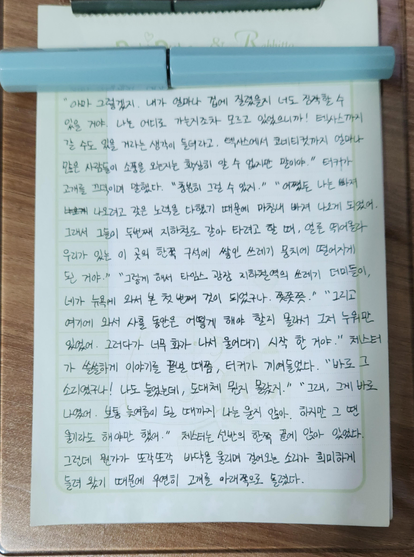 "아마 그렇겠지. 내가 얼마나 겁에 질렸을지 너도 짐작할 수
있을 거야. 나는 어디로 가는지조차 모르고 있었으니까! 텍사스까지
갈 수도 있을 거라는 생각이 들더라고. 텍사스에서 코네티컷까지 얼마나
많은 사람들이 소풍을 오는지는 확실히 알 수 없지만 말이야." 터커가
고개를 끄덕이며 말했다. "충분히 그럴 수 있지." "어쨌든 나는 빠져
나오려고 갖은 노력을 다했기 때문에 마침내 빠져 나오게 되었어.
그래서 그들이 두번째 지하철로 갈아 타려고 할 때, 얼른 뛰어올라
우리가 있는 이 곳의 한쪽 구석에 쌓인 쓰레기 뭉치에 떨어지게
된 거야." "그렇게 해서 타임스 광장 지하철역의 쓰레기 더미들이,
네가 뉴욕에 와서 본 첫 번째 것이 되었구나. 쯧쯧쯧." "그리고
여기에 와서 사흘 동안은 어떻게 해야 할지 몰라서 그저 누워만
있었어. 그러다가 너무 화가 나서 울어대기 시작 한 거야." 체스터
가 쓸쓸하게 이야기를 끝낼 때쯤, 터커가 끼어들었다. "바로 그
소리였구나! 나도 들었는데, 도대체 뭔지 몰랐지." "그래, 그게 바로
나였어. 보통 늦여름이 될 때까지 나는 울지 않아. 하지만 그 땐
울기라도 해야만 했어." 체스터는 선반의 한쪽 끝에 앉아 있었다.
그런데 뭔가가 또각또각 바닥을 울리며 걸어오는 소리가 희미하게
들려 왔기 때문에 우연히 고개를 아래쪽으로 돌렸다.